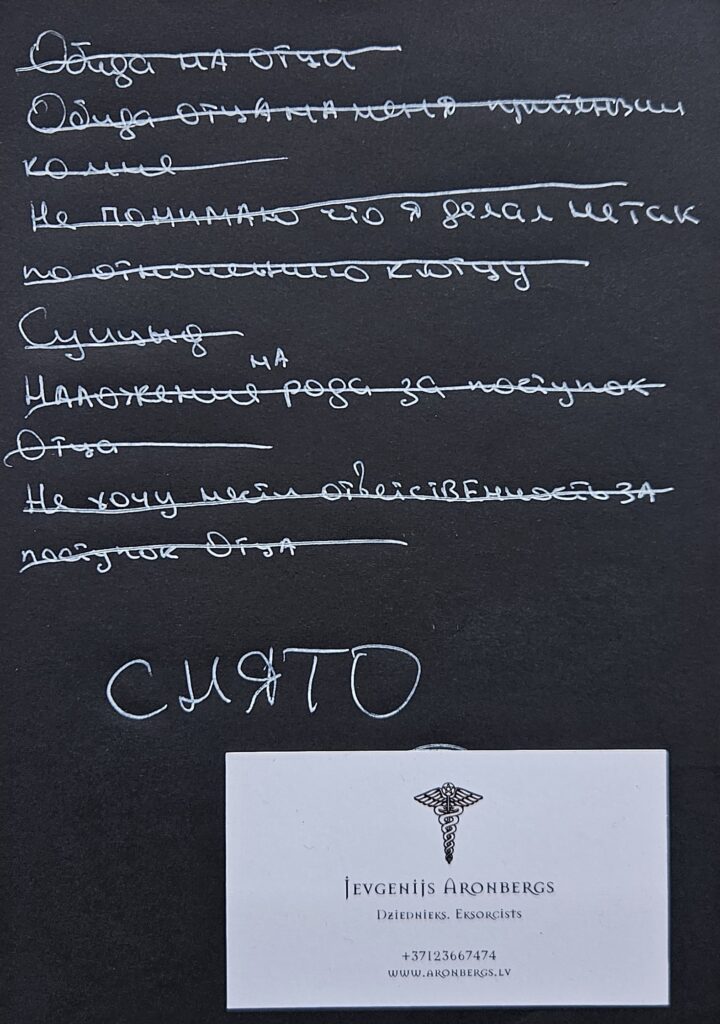 Обида на отца
Обида отца на меня притензии
ко мне
Не понимаю что я делал не так
по отношению к отцу
Суицыд
на
Наложения рода за поступок
Отца
Не хочу нести ответственность за
поступок Отца
СНЯТО
Jevgenijs Aronbergs
Dziednieks. Eksorcists
+37123667474
www.aronbergs.lv